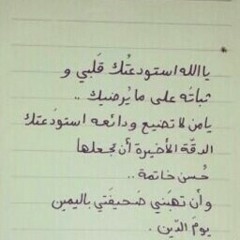 يا الله استودعتُك قَلبي و
ثباتَه على ما يُرضيك ..
يامن لا تضيع ودائعه استودَعتك
الدقّة الأخيرة أن تجعلها
حُسن خاتمة ..
وأن تهبَني صَحيفَتي باليمين
يومَ الدّين .